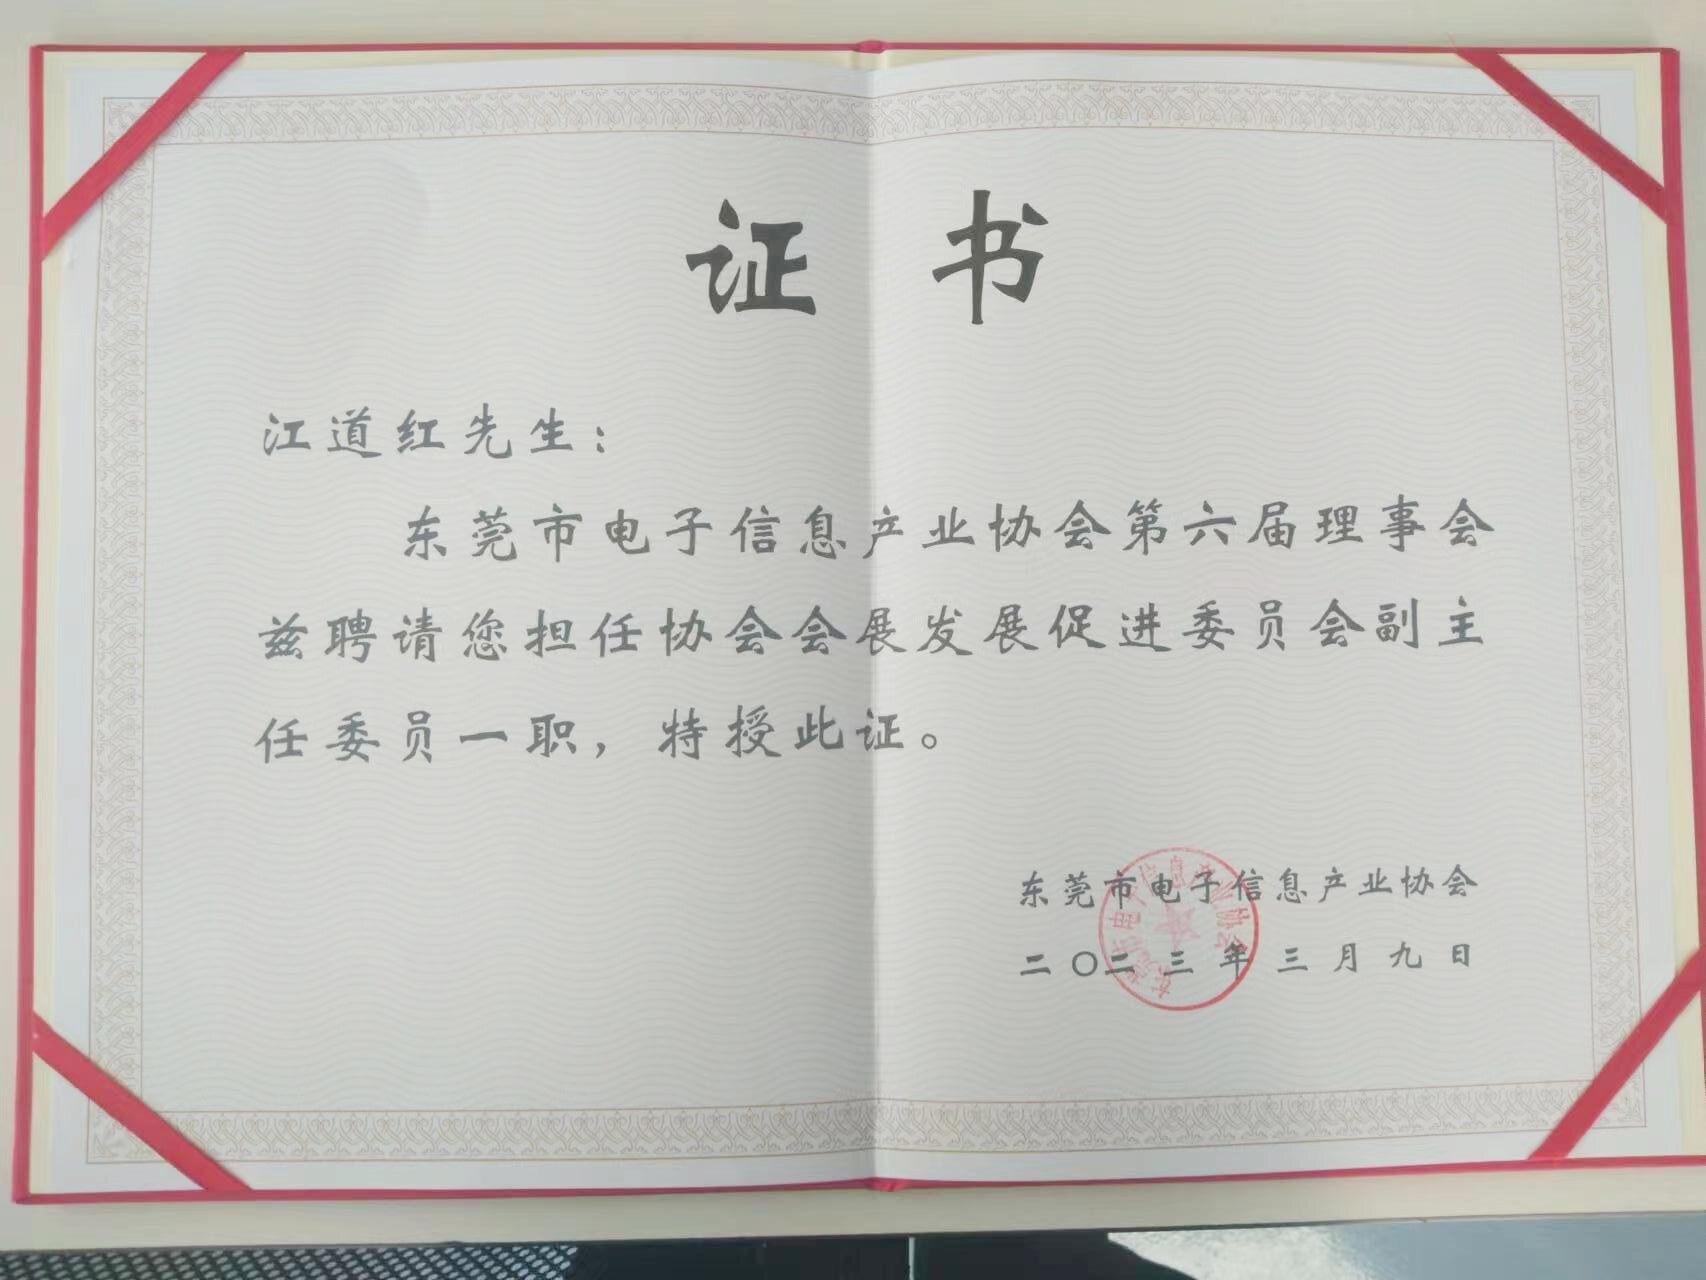 证书
江道红先生：
东莞市电子信息产业协会第六届理事会
兹聘请您担任协会会展发展促进委员会副主
任委员一职，特授此证。
东莞市电子信息产业协会
二〇二三年三月九日
东莞市电子信息产业协会